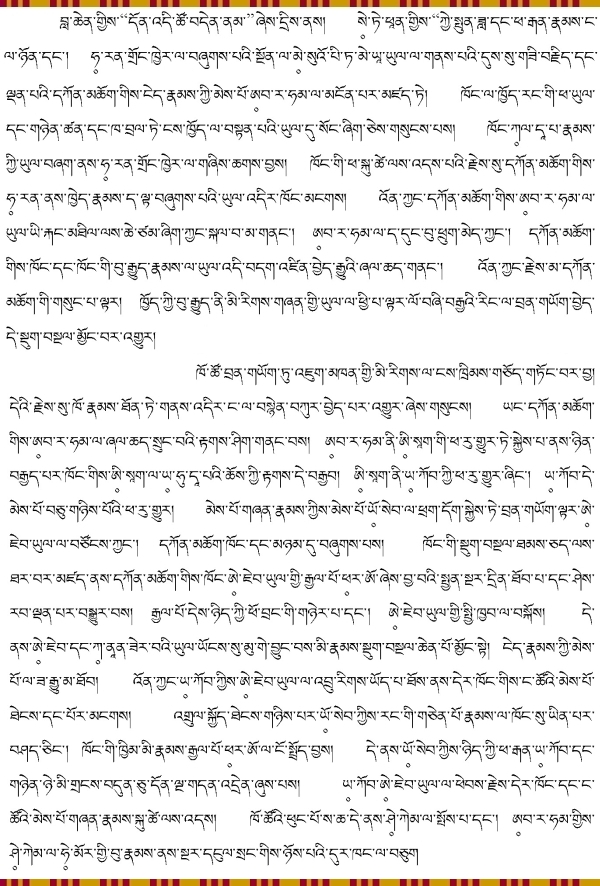 བླ་ཆེན་གྱིས་“དོན་འདི་ཚོ་བདེན་ནམ་”ཞེས་དྲིས་ནས། སེ་ཏེ་ཕན་གྱིས་“ཀྱེ་སྤུན་ཟླ་དང་ཕ་རྒན་རྣམས་ང་
ལ་ཉོན་དང་། ཧ་རན་གྲོང་ཁྱེར་ལ་བཞུགས་པའི་སྔོན་ལ་མེ་སུའོ་པི་ཏ་མེ་ཡཱ་ཡུལ་ལ་གནས་པའི་དུས་སུ་གཟི་བརྗིད་དང་
ལྡན་པའི་དཀོན་མཆོག་གིས་ངེད་རྣམས་ཀྱི་མེས་པོ་ཨབ་ར་ཧམ་ལ་མངོན་པར་མཛད་ཏེ། ཁོང་ལ་ཁྱོད་རང་གི་ཕ་ཡུལ་
དང་གཉེན་ཚན་དང་ཁ་བྲལ་ཏེ་ངས་ཁྱོད་ལ་བསྟན་པའི་ཡུལ་དུ་སོང་ཞིག་ཅེས་གསུངས་པས། ཁོང་ཀལ་དཱ་པ་རྣམས་
ཀྱི་ཡུལ་བཞག་ནས་ཧ་རན་གྲོང་ཁྱེར་ལ་གཞིས་ཆགས་བྱས། ཁོང་གི་ཕ་སྐུ་ཚེ་ལས་འདས་པའི་རྗེས་སུ་དཀོན་མཆོག་གིས་
ཧ་རན་ནས་ཁྱེད་རྣམས་ད་ལྟ་བཞུགས་པའི་ཡུལ་འདིར་ཁོང་མངགས། འོན་ཀྱང་དཀོན་མཆོག་གིས་ཨབ་ར་ཧམ་ལ་
ཡུལ་ཡི་རྐང་མཐིལ་ལས་ཆེ་ཙམ་ཞིག་ཀྱང་སྐལ་བ་མ་གནང་། ཨབ་ར་ཧམ་ལ་ད་དུང་བུ་ཕྲུག་མེད་ཀྱང་། དཀོན་མཆོག་
གིས་ཁོང་དང་ཁོང་གི་བུ་རྒྱུད་རྣམས་ལ་ཡུལ་འདི་བདག་འཛིན་བྱེད་རྒྱུའི་ཞལ་ཆད་གནང་། འོན་ཀྱང་རྗེས་མ་དཀོན་
མཆོག་གི་གསུང་པ་ལྟར། ཁྱོད་ཀྱི་བུ་རྒྱུད་ནི་མི་རིགས་གཞན་གྱི་ཡུལ་ལ་ཕྱི་པ་ལྟར་ལོ་བཞི་བརྒྱའི་རིང་ལ་བྲན་གཡོག་བྱེད་
དེ་སྡུག་བསྔལ་མྱོང་བར་འགྱུར།
ཁོ་ཚོ་བྲན་གཡོག་ཏུ་འཇུག་མཁན་གྱི་མི་རིགས་ལ་ངས་ཁྲིམས་གཅོད་གཏོང་བར་བྱ།
དེའི་རྗེས་སུ་ཁོ་རྣམས་ཐོན་ཏེ་གནས་འདིར་ང་ལ་བསྙེན་བཀུར་བྱེད་པར་འགྱུར་ཞེས་གསུངས། ཡང་དཀོན་མཆོག་
གིས་ཨབ་ར་ཧམ་ལ་ཞལ་ཆད་སྲུང་བའི་རྟགས་ཤིག་གནང་བས། ཨབ་ར་ཧམ་ནི་ཨི་སཱག་གི་ཕ་རུ་གྱུར་ཏེ་སྐྱེས་པ་ནས་ཉིན་
བརྒྱད་པར་ཁོང་གིས་ཨི་སཱག་ལ་ཡ་ཧུ་དཱ་པའི་ཆོས་ཀྱི་རྟགས་དེ་བརྒྱབ། ཨི་སཱག་ནི་ཡ་ཀོབ་ཀྱི་ཕ་རུ་གྱུར་ཞིང་། ཡ་ཀོབ་དེ་
མེས་པོ་བཅུ་གཉིས་པོའི་ཕ་རུ་གྱུར། མེས་པོ་གཞན་རྣམས་ཀྱིས་མེས་པོ་ཡོ་སེབ་ལ་ཕྲག་དོག་སྐྱེས་ཏེ་བྲན་གཡོག་ལྟར་ཨེ་
ཇེབ་ཡུལ་ལ་བཙོངས་ཀྱང་། དཀོན་མཆོག་ཁོང་དང་མཉམ་དུ་བཞུགས་པས། ཁོང་གི་སྡུག་བསྔལ་ཐམས་ཅད་ལས་
ཐར་བར་མཛད་ནས་དཀོན་མཆོག་གིས་ཁོང་ཨེ་ཇེབ་ཡུལ་གྱི་རྒྱལ་པོ་ཕར་ཨོ་ཞེས་བྱ་བའི་སྤྱན་སྔར་དྲིན་ཐོབ་པ་དང་ཤེས་
རབ་ལྡན་པར་བསྒྱུར་བས། རྒྱལ་པོ་དེས་ཉིད་ཀྱི་ཕོ་བྲང་གི་གཉེར་པ་དང་། ཨེ་ཇེབ་ཡུལ་གྱི་སྤྱི་ཁྱབ་ལ་བསྐོས། དེ་
ནས་ཨེ་ཇེབ་དང་ཀ་ནཱན་ཟེར་བའི་ཡུལ་ཡོངས་སུ་མུ་གེ་བྱུང་བས་མི་རྣམས་སྡུག་བསྔལ་ཆེན་པོ་མྱོང་སྟེ། ངེད་རྣམས་ཀྱི་མེས་
པོ་ལ་ཟ་རྒྱུ་མ་ཐོབ། འོན་ཀྱང་ཡ་ཀོབ་ཀྱིས་ཨེ་ཇེབ་ཡུལ་ལ་འབྲུ་རིགས་ཡོད་པ་ཐོས་ནས་དེར་ཁོང་གིས་ང་ཚོའི་མེས་པོ་
ཐེངས་དང་པོར་མངགས། འགྲུལ་སྐྱོད་ཐེངས་གཉིས་པར་ཡོ་སེབ་ཀྱིས་རང་གི་གཅེན་པོ་རྣམས་ལ་ཁོང་སུ་ཡིན་པར་
བཤད་ཅིང་། ཁོང་གི་ཁྱིམ་མི་རྣམས་རྒྱལ་པོ་ཕར་ཨོ་ལ་ངོ་སྤྲོད་བྱས། དེ་ནས་ཡོ་སེབ་ཀྱིས་ཉིད་ཀྱི་ཕ་རྒན་ཡ་ཀོབ་དང་
གཉེན་ཉེ་མི་གྲངས་བདུན་ཅུ་དོན་ལྔ་གདན་འདྲེན་ཞུས་པས། ཡ་ཀོབ་ཨེ་ཇེབ་ཡུལ་ལ་ཕེབས་རྗེས་དེར་ཁོང་དང་ང་
ཚོའི་མེས་པོ་གཞན་རྣམས་སྐུ་ཚེ་ལས་འདས། ཁོ་ཚོའི་ཕུང་པོ་ས་ཆ་དེ་ནས་ཤེ་ཀེམ་ལ་སྤོས་པ་དང་། ཨབ་ར་ཧམ་གྱིས་
ཤེ་ཀེམ་ལ་ཧེ་མོར་གྱི་བུ་རྣམས་ནས་སྔར་དངུལ་སྲང་གིས་ཉོས་པའི་དུར་ཁང་ལ་བཅུག